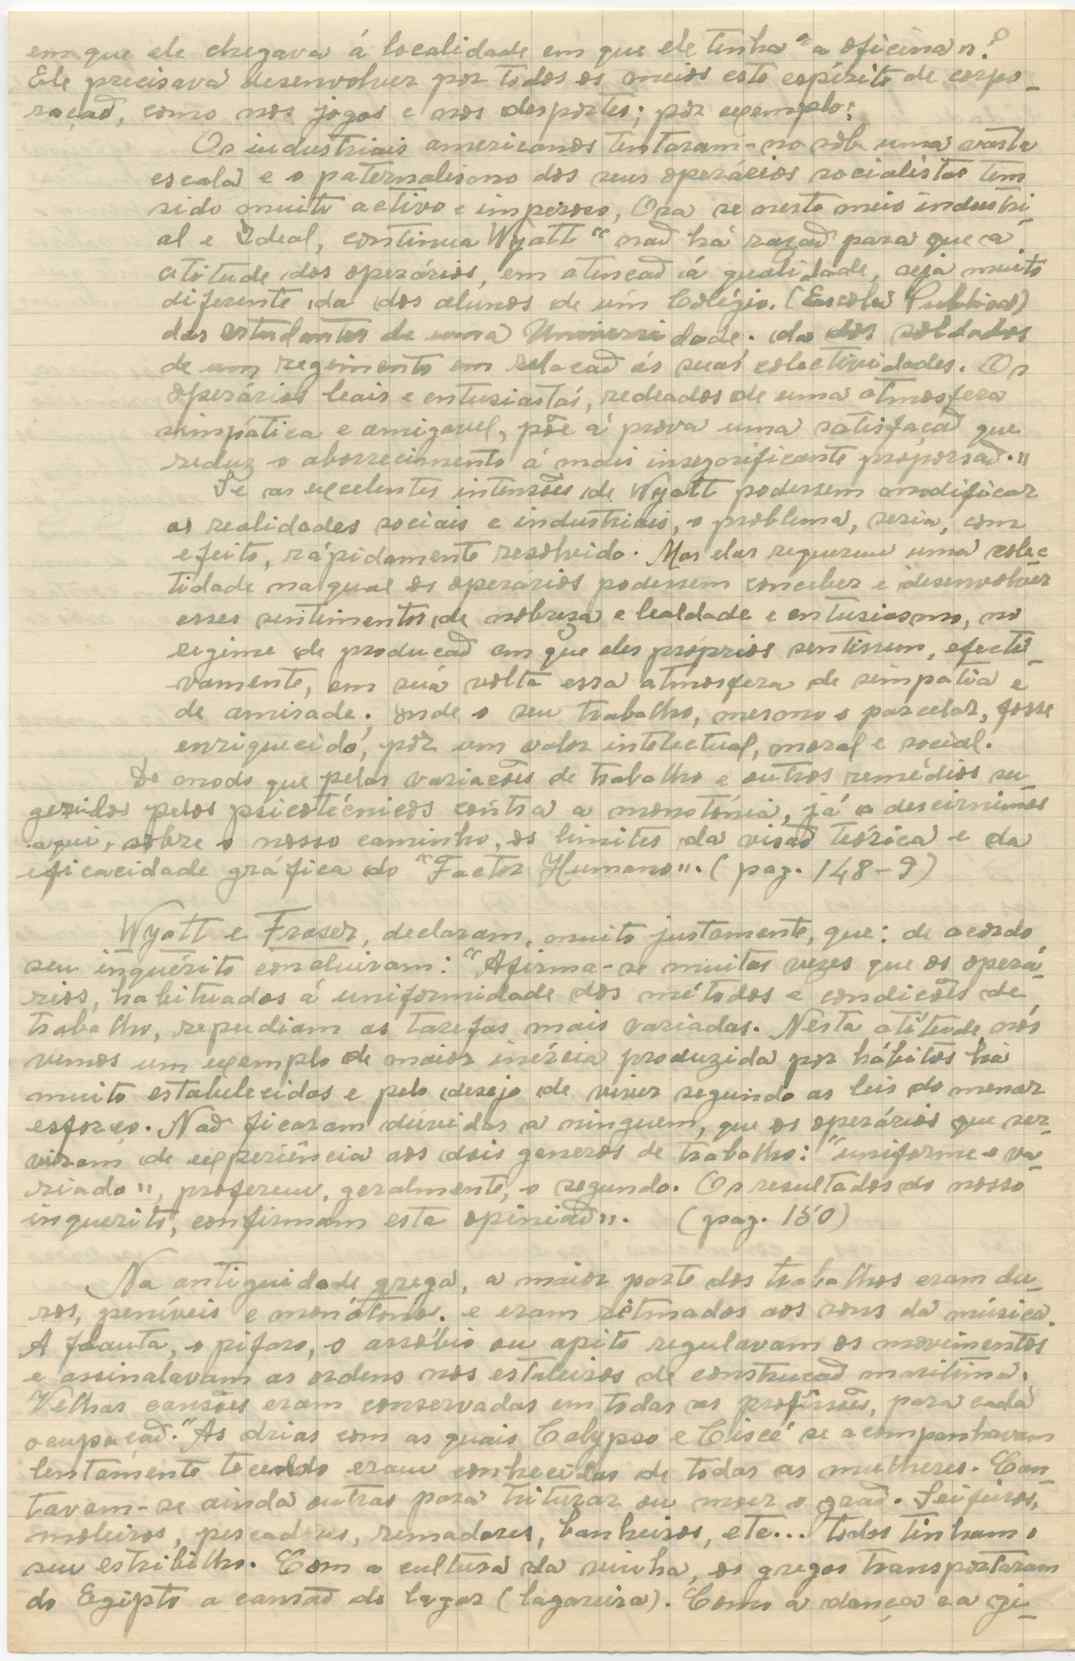 em que ele chegava á localidade em que ele tinha "a oficina"?
Ele precisava desenvolver por todos os meios este espírito de corpo-
ração, como nos jogos e nos desportes; por exemplo:
Os industriais americanos tentaram-no sob uma vasta
escala e o paternalismo dos seus operários socialistas tem
sido muito activo e imperoso, Ora se neste meio industri-
al e Ideal, continua Wyatt "não há razão para que a
atitude dos operários, em atenção á qualidade, seja muito
diferente da dos alunos de um Colégio. (Escola Publica)
das estudantes de uma Universidade. da dos soldados
de um regimento em relação ás suas colectividades. Os
operários leais e entusiastas, rodeados de uma atmosfera
simpática e amigavel, põe á prova uma satisfação que
reduz o aborrecimento á mais insegnificante proporsão."
Se as excelentes intensões de Wyatt podessem modificar
as realidades sociais e industriais, o problema, seria, com
efeito, rápidamente resolvido. Mas elas requerem uma colec
tidade na qual os operarios podessem conceber e desenvolver
esses sentimentos de nobresa e lealdade e entusiasmo, no
regime de produção em que eles próprios sentissem, efecti-
vamente, em sua volta essa atmosfera de simpatia e
de amisade; onde o seu trabalho, mesmo o parcelar, fosse
enriquecido, por um valor intelectual, moral e social.
De modo que pelas variações de trabalho e outros remédios su
geridos pelos psicotécnicos contra a monotónia, já o descirnimos
aqui, sobre o nosso caminho, os limites da visão teórica e da
eficacidade gráfica do "Factor Humano". (pag. 148-9)
Wyatt e Fraser, declaram, muito justamente, que: de acordo
seu inquérito concluiram: "Afirma-se muitas vezes que os operá-
rios, habituados á uniformidade dos métodos e condições de
trabalho, repudiam as tarefas mais variadas. Nesta atitude nós
vemos um exemplo de maior inércia produzida por hábitos há
muito estabelecidos e pelo desejo de viver segundo as leis do menor
esforço. Não ficaram dúvidas a ninguem, que os operários que ser-
viram de experiência aos dois generos de trabalho: "uniforme e va-
riado", preferem, geralmente, o segundo. Os resultados do nosso
inquerito, confirmam esta opinião". (pag. 150)
Na antiguidade grega, a maior parte dos trabalhos eram du-
ros, peníveis e monótono. e eram ritmados aos sons da música.
A flauta, o pifaro, o assóbio ou apito regulavam os movimentos
e assinalavam as ordens nos estaleiros de construcão maritima.
Velhas cansões eram conservadas em todas as profissões, para cada
ocupação. "As árias com as quais Calypso e Circé se acompanhavam
lentamente tecendo eram conhecidas de todas as mulheres. Can-
tavam-se ainda outras para triturar ou moer o grão. Seifeiros,
moleiros, pescadores, remadores, banheiros, ete... todos tinham o
seu estribilho. Com a cultura da vinha, os gregos transportaram
do Egipto a cansão do lagar (lagareira). Como a dança e a gi-